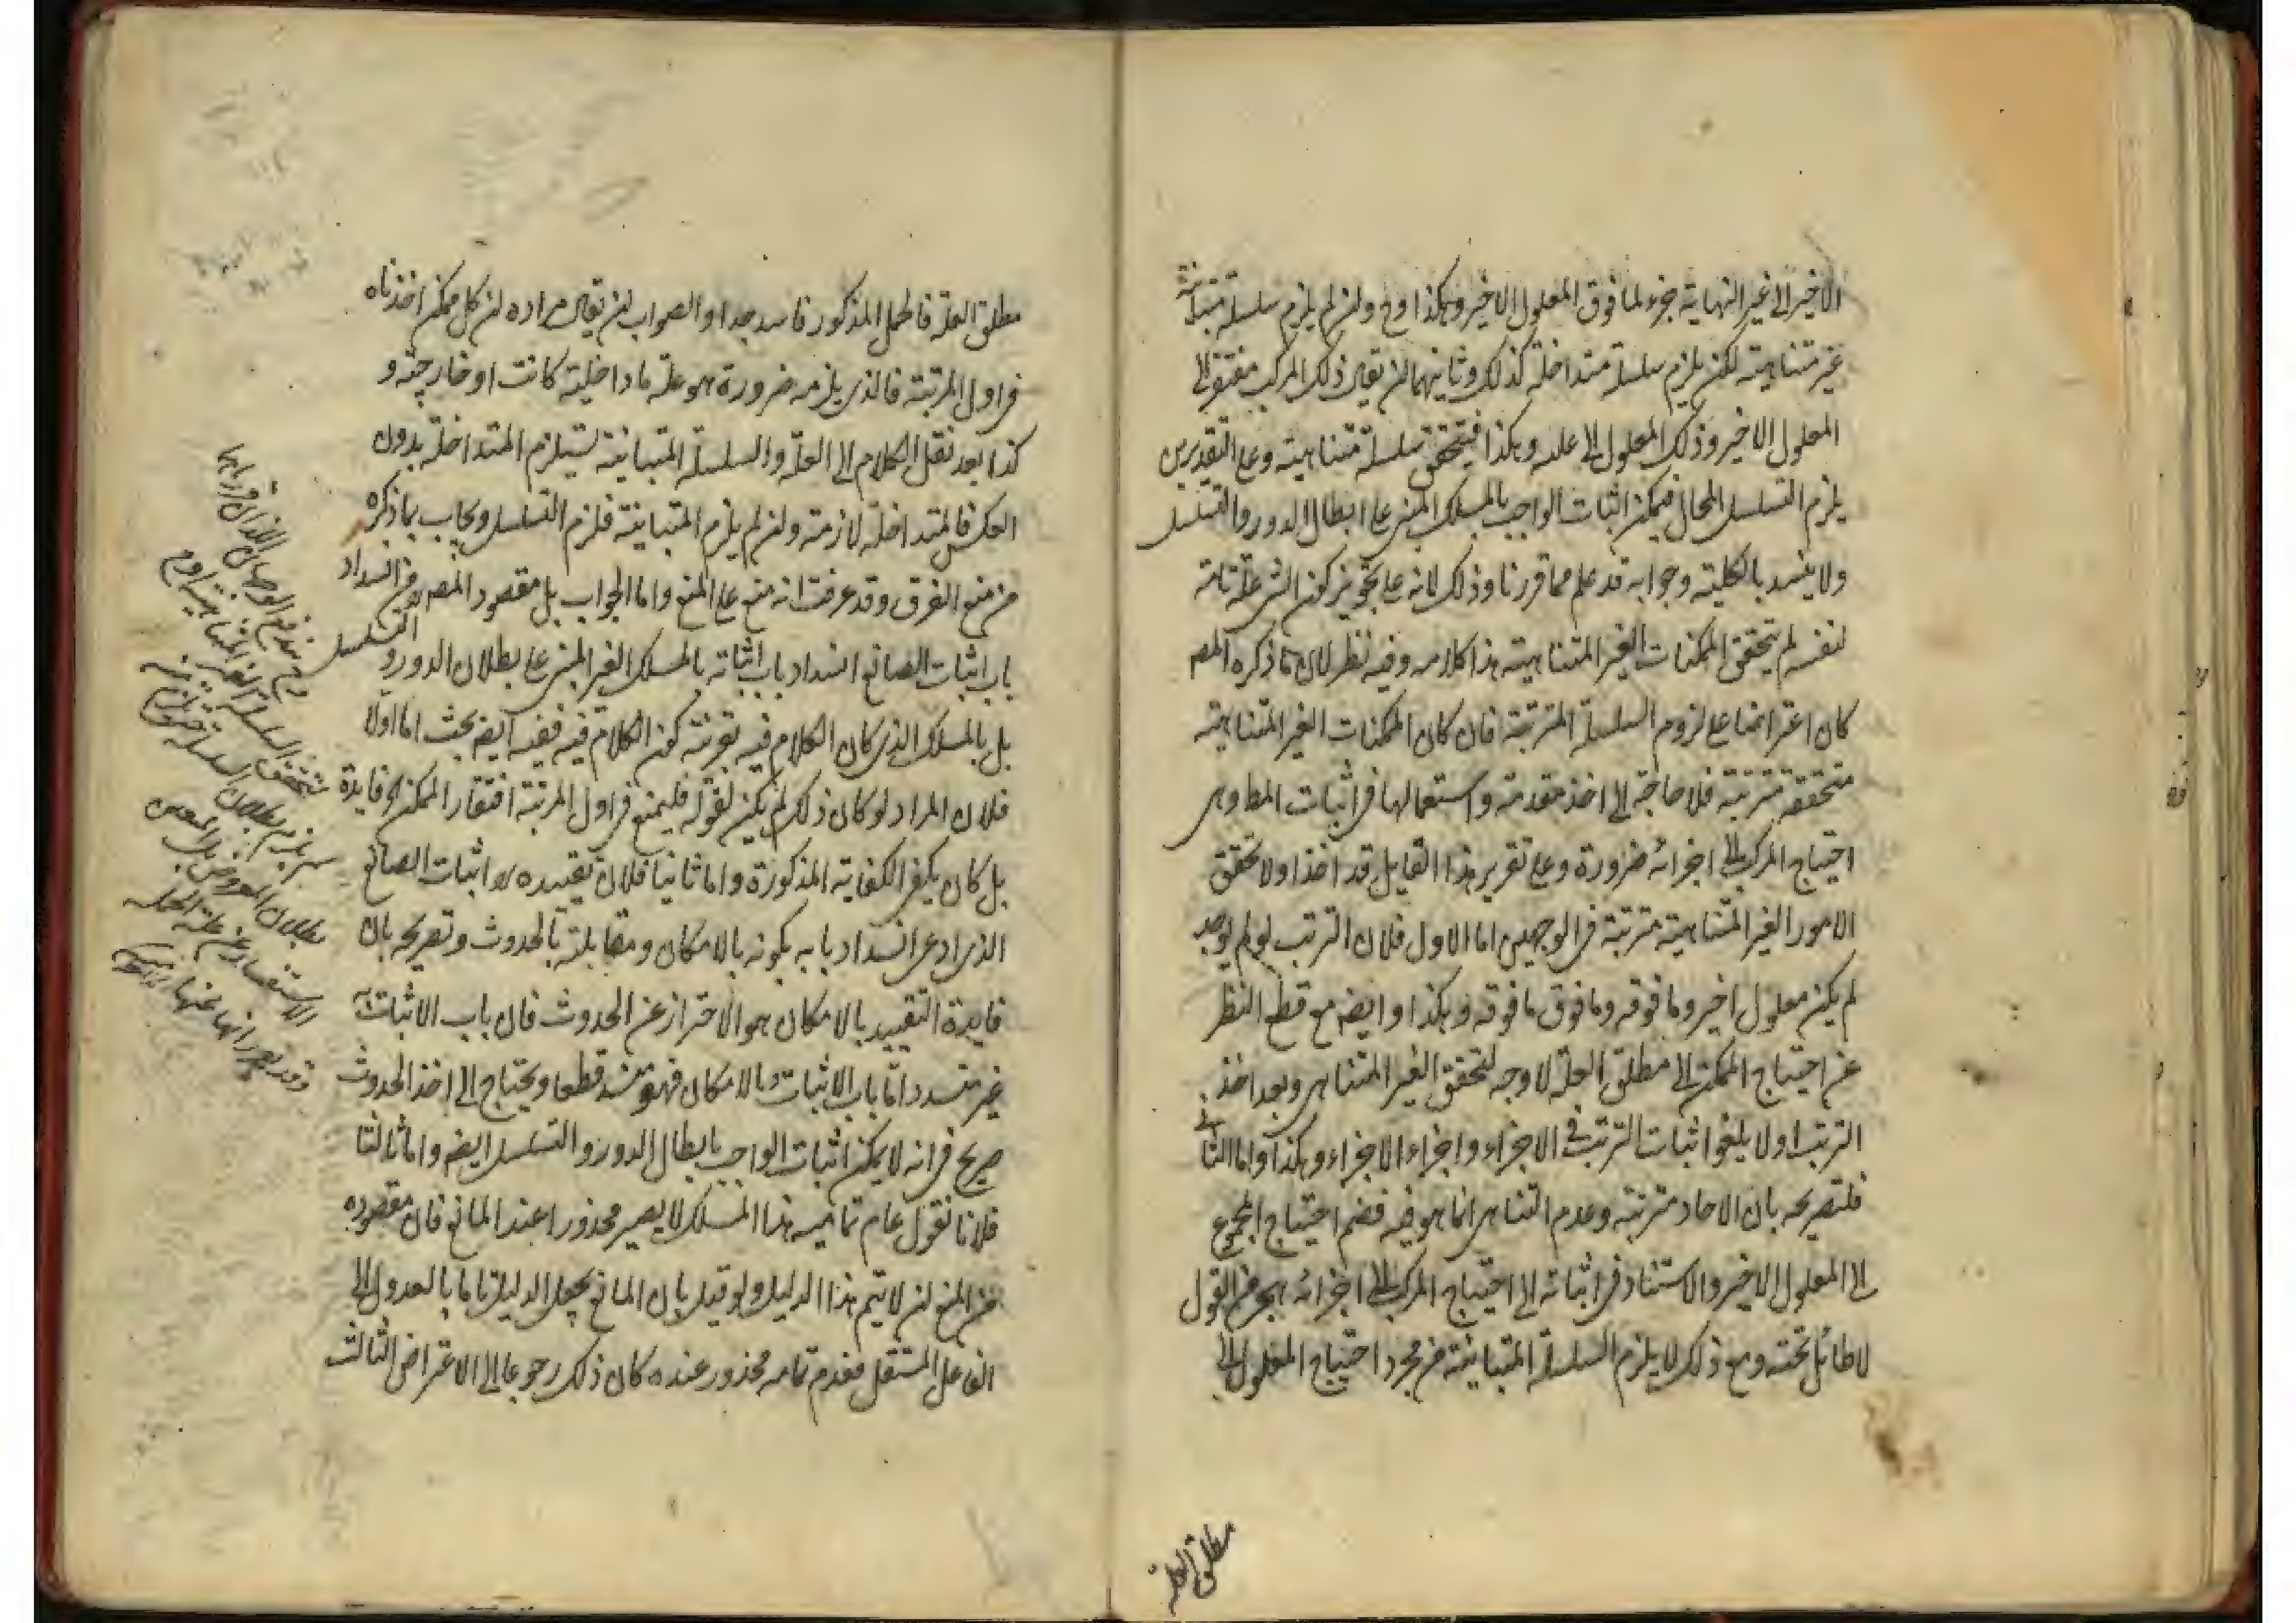 الاخير الى غير النهاية جزء لما فوق المعلول الاخير وهكذا وح ولئن لم يلزم سلسلة متباينة
غير متناهية لكن يلزم سلسلة متداخلة كذلك وثانيهما ان يقال ذلك المركب مفتقر الى
المعلول الاخير وذلك المعلول الى علته وهكذا فيتحقق سلسلة متناهية وعلى التقديرين
يلزم التسلسل المحال فيمكن اثبات الواجب بالمسلك المبنى على ابطال الدور والتسلسل
ولا ينسد بالكلية وجوابه قد علم مما قررنا وذلك لانه على تجويز كون الشئ علة تامة
لنفسه لم يتحقق الممكنات الغير المتناهية هذا كلامه وفيه نظر لان ما ذكره المصـ
كان اعتراضا على لزوم السلسلة المترتبة فان كان الممكنات الغير المتناهية
متحققة مترتبة فلا حاجة الى اخذ مقدمة واستعمالها فى اثبات المط وهى
احتياج المركب الى اجزائه ضرورة وعلى تقرير هذا القايل قد اخذ اولا تحقق
الامور الغير المتناهية مترتبة فى الوجهين اما الاول فلان الترتب لو لم يوجد
لم يكن معلول اخير وما فوقه وما فوق ما فوقه وهكذا وايضه مع قطع النظر
عن احتياج الممكن الى مطلق العلة لا وجه لتحقق الغير المتناهى وبعد اخذ
الترتب اولا يلغو اثبات الترتب فى الاجزاء واجزاء الاجزاء وهكذا واما الثانى
فلتصريحه بان الاحاد مترتبة وعدم التناهى انما هو فيه فضم احتياج المجموع
الى المعلول الاخير والاستناد فى اثباته الى احتياج المركب الى اجزائه هجر من القول
لا طائل تحته ومع ذلك لا يلزم السلسلة المتباينة من مجرد احتياج المعلول الى
مطلق العلة
مطلق العلة فالحمل المذكور فاسد جدا والصواب ان يقال مراده ان كل ممكن اخذناه
فى اول المرتبة فالذى يلزمه ضرورة هو علة ما داخلية كانت او خارجية و
كذا بعد نقل الكلام الى العلة والسلسلة المتباينة تستلزم المتداخلة بدون
العكس فالمتداخلة لازمة ولئن لم يلزم المتباينة فلزم التسلسل ويجاب بما ذكره
من منع الفرق وقد عرفت انه منع على المنع واما الجواب بل مقصود المصـ من انسداد
باب اثبات الصانع انسداد باب اثباته بالمسلك الغير المبنى على بطلان الدور و
التسلسل
بل بالمسلك الذى كان الكلام فيه بقرينة كون الكلام فيه ففيه ايضه بحث اما اولا
فلان المراد لو كان ذلك لم يكن لقوله فليمنع فى اول المرتبة افتقار الممكن الخ فايدة
بل كان يكفى الكفاية المذكورة واما ثانيا فلان تقييده اثبات الصانع
الذى ادعى انسداد بابه بكونه بالامكان ومقابلته بالحدوث وتصريحه بان
فايدة التقييد بالامكان هو الاحتراز عن الحدوث فان باب الاثبات به
غير منسد واما باب الاثبات بالامكان فهو منسد قطعا ويحتاج الى اخذ الحدوث
صريح فى انه لا يمكن اثبات الواجب بابطال الدور والتسلسل ايضه واما ثالثا
فلانا نقول عدم تمامية هذا المسلك لا يصير محذورا عند المانع فان مقصوده
من المنع ان لا يتم هذا الدليل ولو قيل بان المانع يجعل الدليل تاما بالعدول الى
الفاعل المستقل فعدم تمامه محذور عنده كان ذلك رجوعا الى الاعتراض الثالث